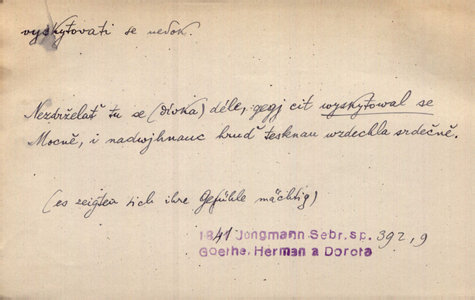 vyskytovati se nedok.
Nezdrželať tu se (dívka) déle, gegj cit wyskytowal se
Mocně, i nadwjhnauc hruď tesknau wzdechla srdečně.
(es zeigten sich ihre Gefühle mächtig)
1841 Jungmann Sebr. sp. 392, 9
Goethe, Herman a Dorota